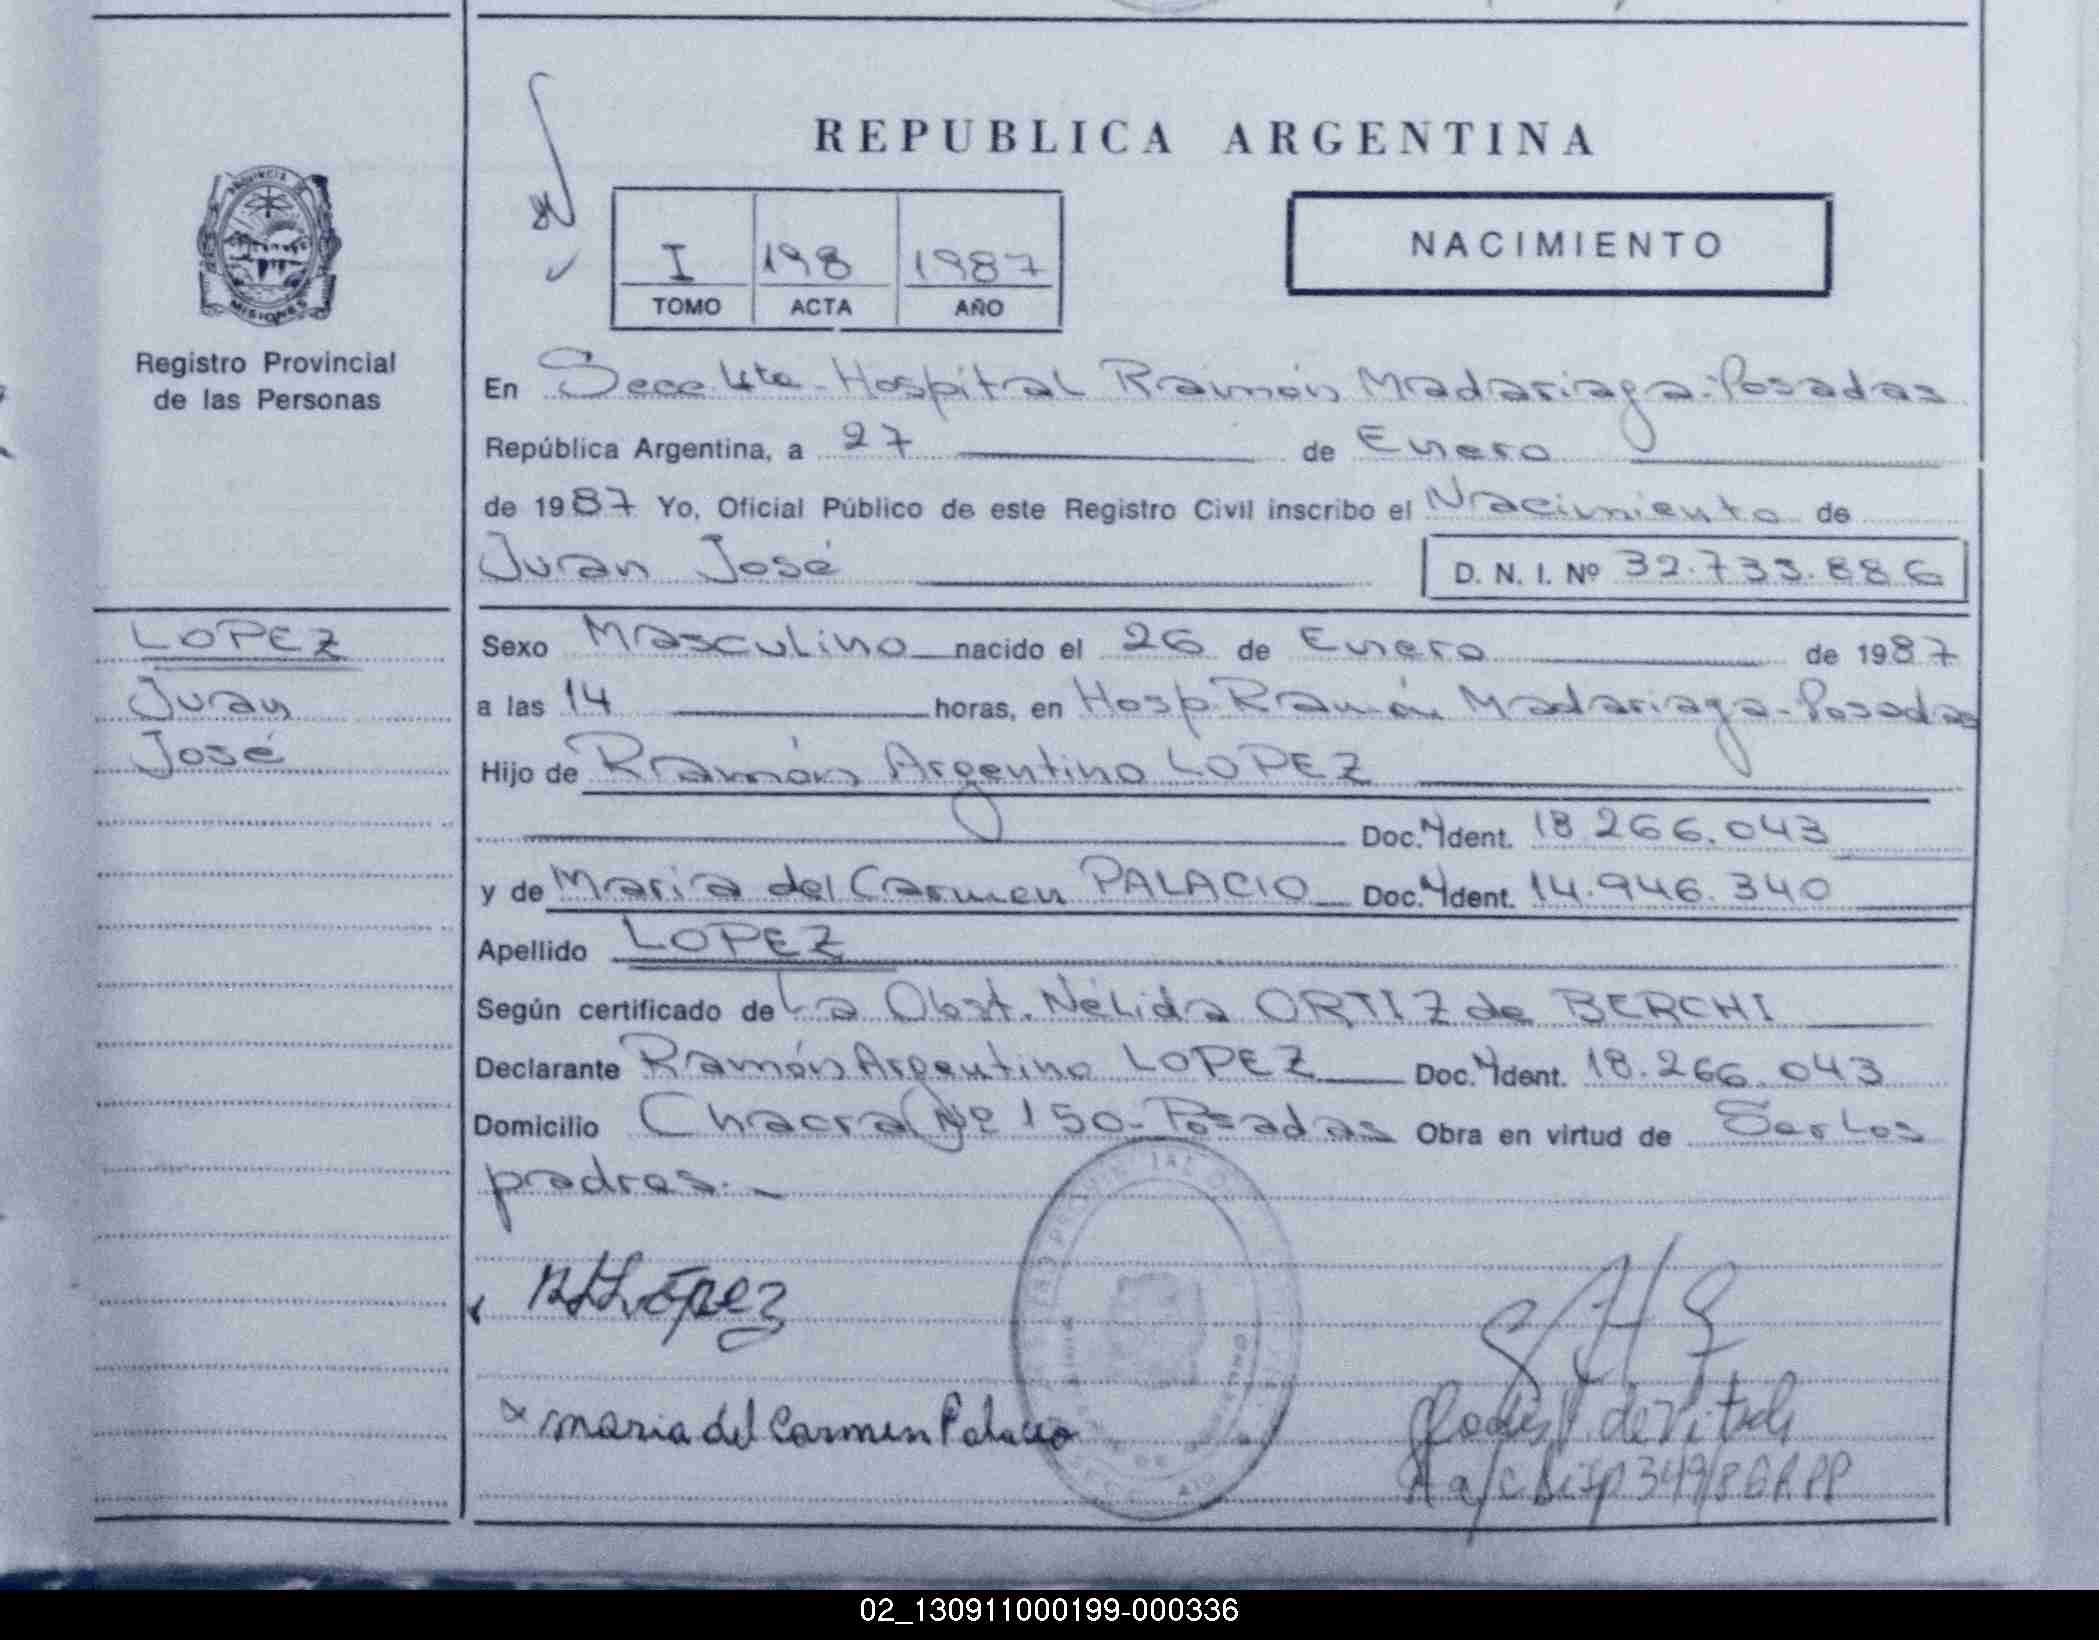 REPUBLICA ARGENTINA
NACIMIENTO
I 198 1987
TOMO ACTA AÑO
PROVINCIA DE
MISIONES
Registro Provincial
de las Personas
LOPEZ
Juan
José
En Secc. 4ta - Hospital Ramón Madariaga - Posadas
República Argentina, a 27 de Enero
de 1987 Yo, Oficial Público de este Registro Civil inscribo el Nacimiento de
Juan José D. N. I. Nº 32.733.886
Sexo Masculino nacido el 26 de Enero de 1987
a las 14 horas, en Hosp. Ramón Madariaga - Posadas
Hijo de Ramón Argentino LOPEZ
Doc. Ident. 18.266.043
y de Maria del Carmen PALACIO Doc. Ident. 14.946.340
Apellido LOPEZ
Según certificado de La Obst. Nélida ORTIZ de BERCHI
Declarante Ramón Argentino LOPEZ Doc. Ident. 18.266.043
Domicilio Chacra Nº 150 - Posadas Obra en virtud de Ser los
padres.-
López
x maria del Carmen Palacio
de
a/c Disp 349/86
02_130911000199-000336